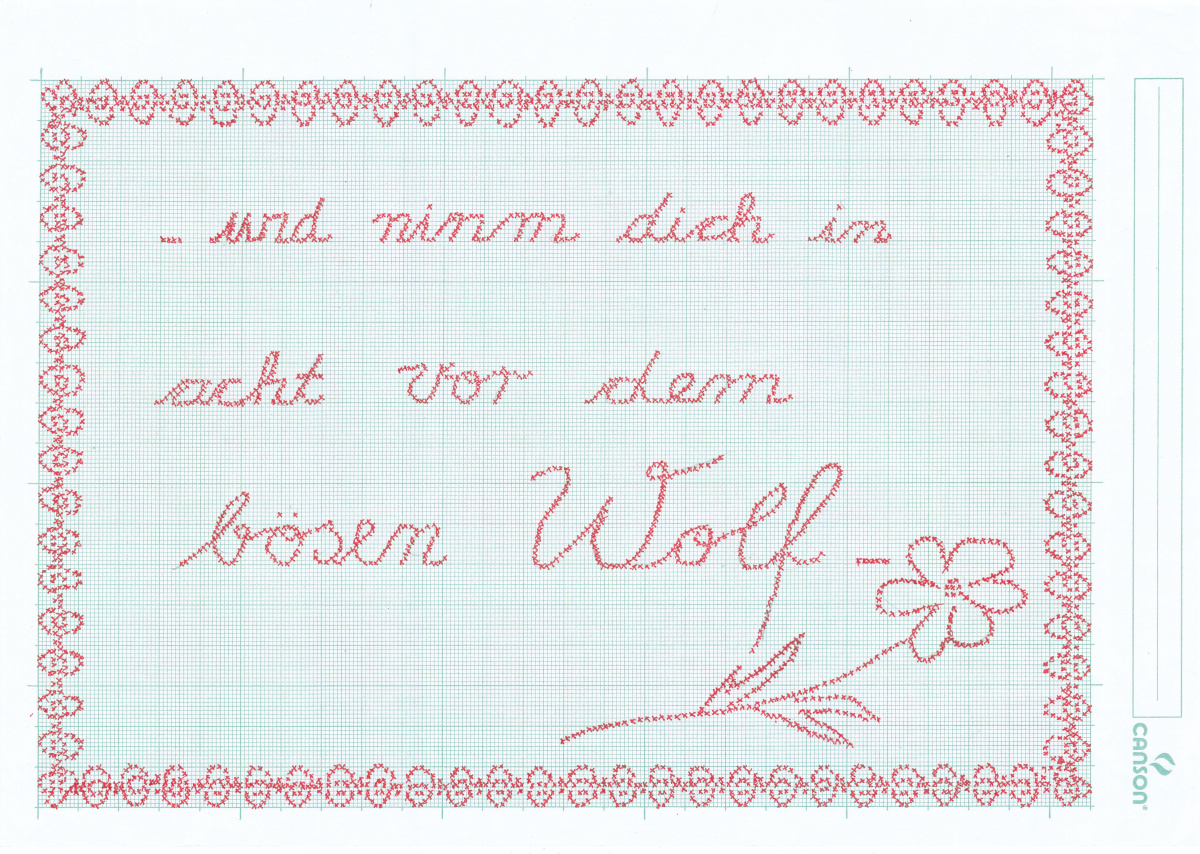 - und nimm dich in
acht vor dem
bösen Wolf -
CANSON